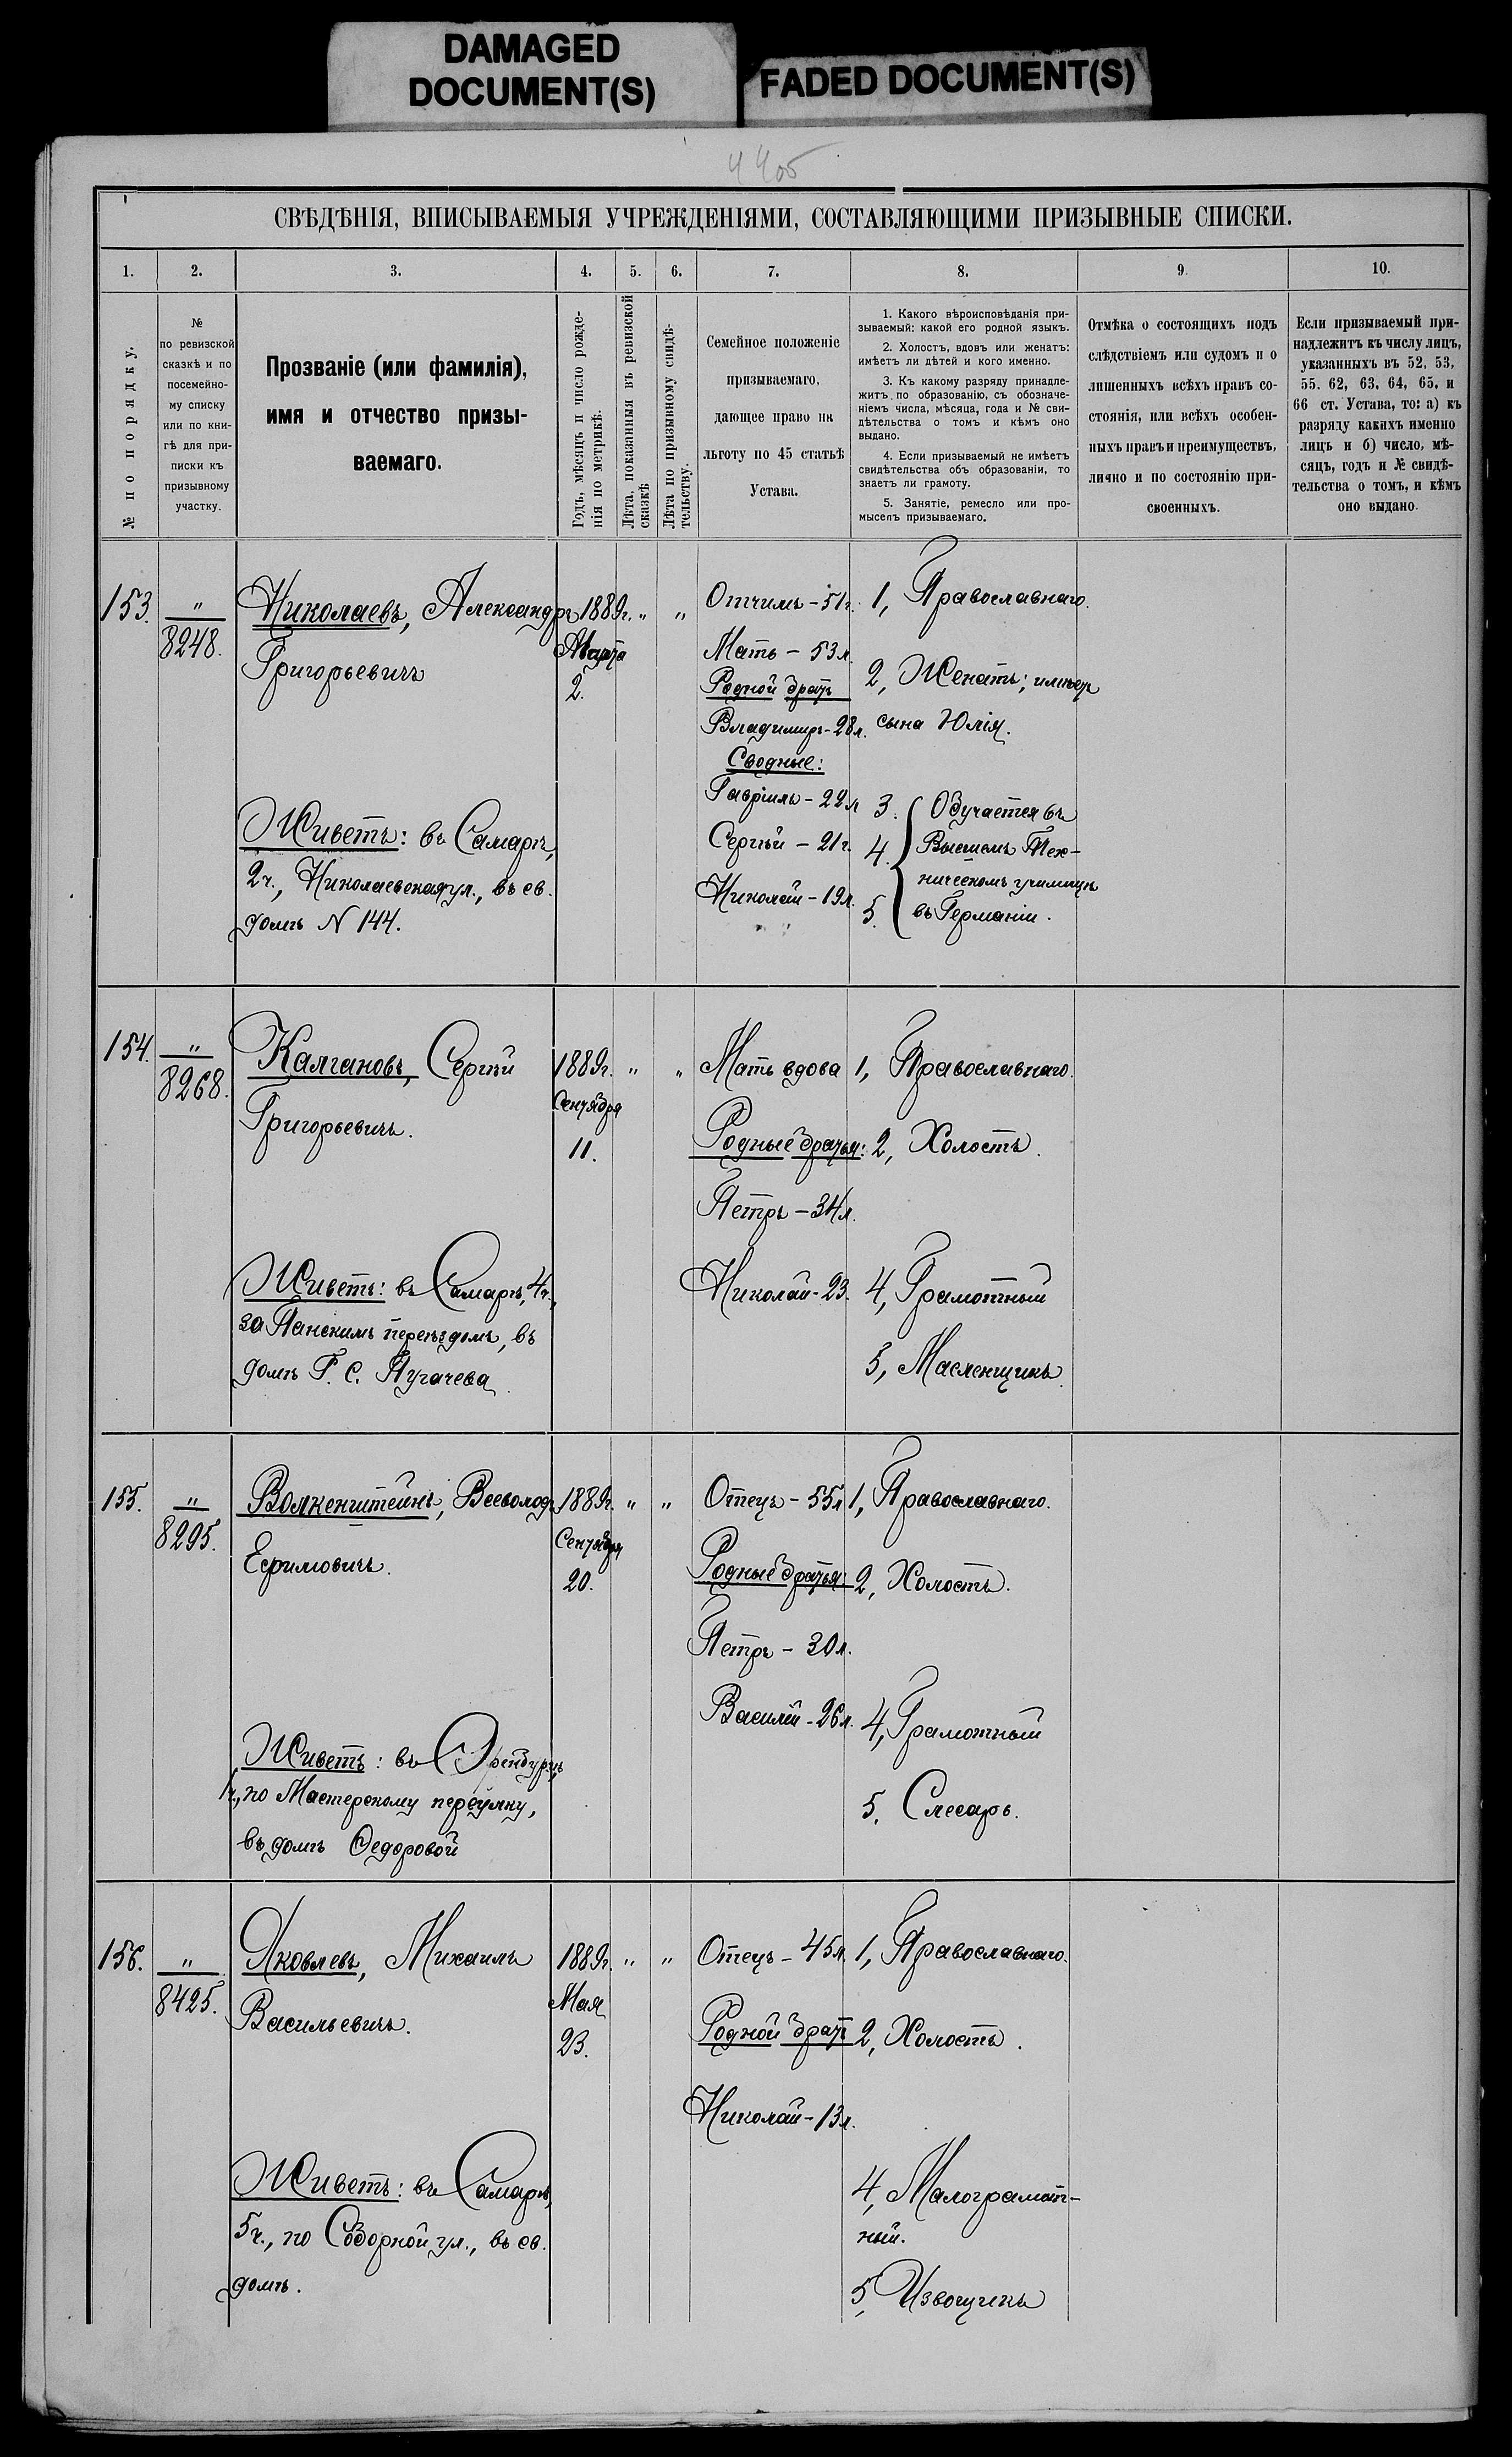 DAMAGED
DOCUMENT(S)
FADED DOCUMENT(S)
СВѢДѢНІЯ, ВПИСЫВАЕМЫЯ УЧРЕЖДЕНІЯМИ, СОСТАВЛЯЮЩИМИ ПРИЗЫВНЫЕ СПИСКИ.
1.
2.
3.
4.
5.
6.
7.
8.
9
10.
№ по порядку.
№
по ревизской
сказкѣ и по
посемейно-
му списку
или по кни-
гѣ для при-
писки къ
призывному
участку.
Прозваніе (или фамилія),
имя и отчество призы-
ваемаго.
Годъ, мѣсяцъ и число рожде-
нія по метрикѣ.
Лѣта, показанныя въ ревизской
сказкѣ
Лѣта по призывному свидѣ-
тельству.
Семейное положеніе
призываемаго,
дающее право на
льготу по 45 статьѣ
Устава.
1. Какого вѣроисповѣданія при-
зываемый: какой его родной языкъ.
2. Холостъ, вдовъ или женатъ:
имѣетъ ли дѣтей и кого именно.
3. Къ какому разряду принадле-
житъ по образованію, съ обозначе-
ніемъ числа, мѣсяца, года и № сви-
дѣтельства о томъ и кѣмъ оно
выдано.
4. Если призываемый не имѣетъ
свидѣтельства объ образованіи, то
знаетъ ли грамоту.
5. Занятіе, ремесло или про-
мыселъ призываемаго.
Отмѣка о состоящихъ подъ
слѣдствіемъ или судомъ и о
лишенныхъ всѣхъ правъ со-
стоянія, или всѣхъ особен-
ныхъ правъ и преимуществъ,
лично и по состоянію при-
своенныхъ.
Если призываемый при-
надлежитъ къ числу лицъ,
указанныхъ въ 52, 53,
55. 62, 63, 64, 65, и
66 ст. Устава, то: а) къ
разряду какихъ именно
лицъ и б) число, мѣ-
сяцъ, годъ и № свидѣ-
тельства о томъ, и кѣмъ
оно выдано.
153.
"
8248.
Николаевъ, Александръ
Григорьевичъ
Живетъ: въ Самарѣ,
2ч., Николаевская ул., въ св.
домѣ N 144.
1889г.
Марта
2.
"
"
Отчимъ - 51г.
Мать - 53л.
Родной братъ
Владимиръ - 28л.
Сводные:
Гавріилъ - 22л
Сергѣй - 21г.
Николай - 19л.
1, Православнаго.
2, Женатъ; имѣетъ
сына Юлія.
3.
4.
5.
Обучается въ
Высшемъ Тех-
ническомъ училищѣ
въ Германіи.
154.
"
8268.
Калгановъ, Сергѣй
Григорьевичъ.
Живетъ: въ Самарѣ, 4ч.,
за Панскимъ переѣздомъ, въ
домѣ Г. С. Пугачева
1889г.
Сентября
11.
"
"
Мать вдова
Родные братья:
Петръ - 34л.
Николай - 23.
1, Православнаго.
2, Холостъ.
4, Грамотный
5, Масленщикъ.
155.
"
8295.
Волкенштейнъ, Всеволодъ
Ефимовичъ.
Живетъ: въ Оренбургѣ,
1ч., по Мастерскому переулку,
въ домѣ Федоровой
1889г.
Сентября
20.
"
"
Отецъ - 55л
Родные братья:
Петръ - 30л.
Василій - 26л.
1, Православнаго.
2, Холостъ.
4, Грамотный
5. Слесарь.
156.
"
8425.
Яковлевъ, Михаилъ
Васильевичъ.
Живетъ: въ Самарѣ,
5ч., по Соборной ул., въ св.
домѣ.
1889г.
Мая
23.
"
"
Отецъ - 45л.
Родной братъ
Николай - 13л.
1, Православнаго.
2, Холостъ.
4, Малограмот-
ный.
5, Извощикъ